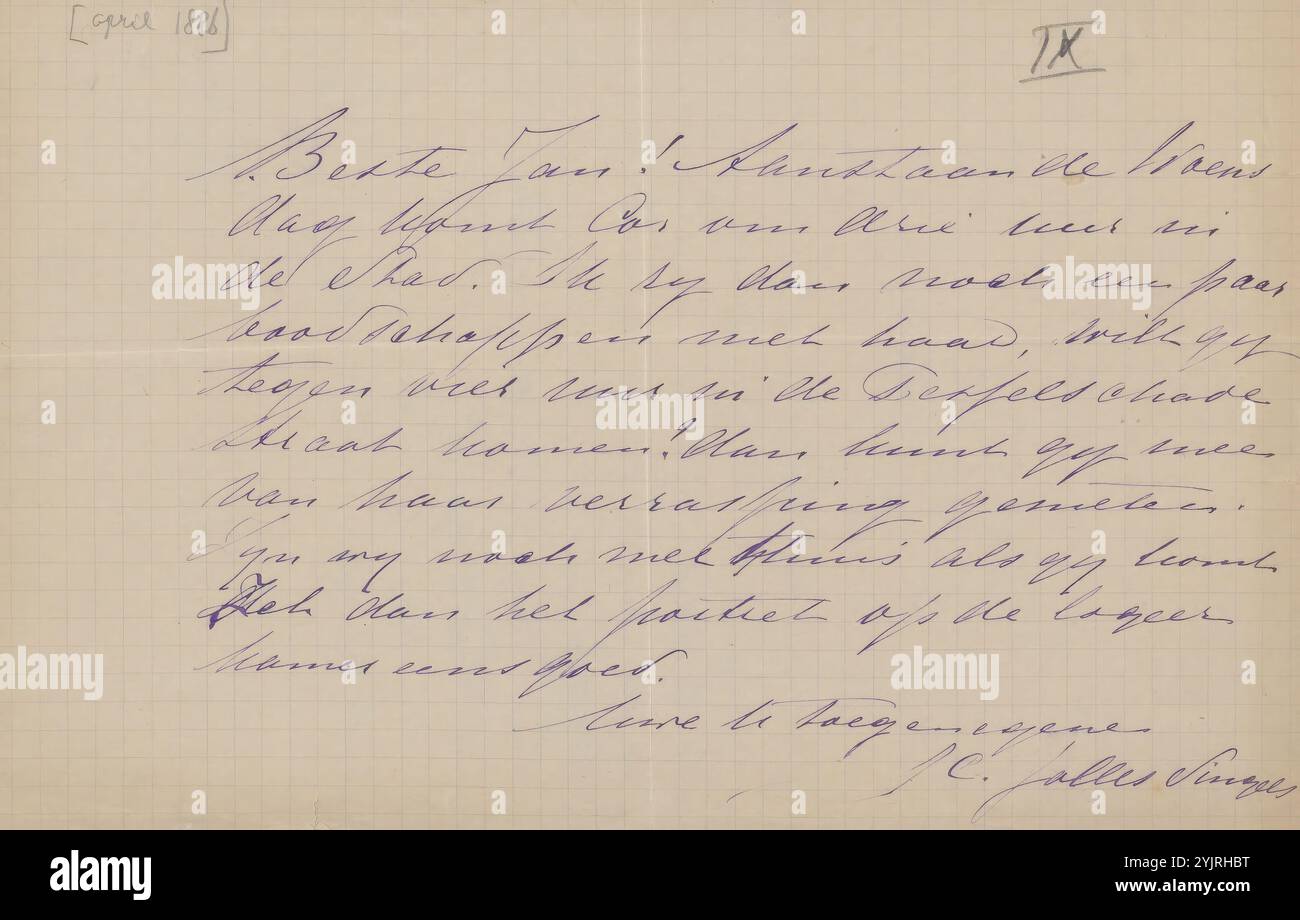 [april 1886]
IX
Beste Jan! Aanstaande Woens
dag komt Cor om drie uur in
de stad. Ik ry dan noch een paar
boodschappen met haar, wilt gy
tegen vier uur in de Tesselschade
straat komen? dan kunt gy mee
van haar verrassing genieten.
Zyn wy noch niet thuis als gy komt
Zet dan het portret op de logeer
kamer eens goed.
Uwe U toegenegene
J C. Jolles Singels
alamy
Image ID: 2YJRHBT
www.alamy.com